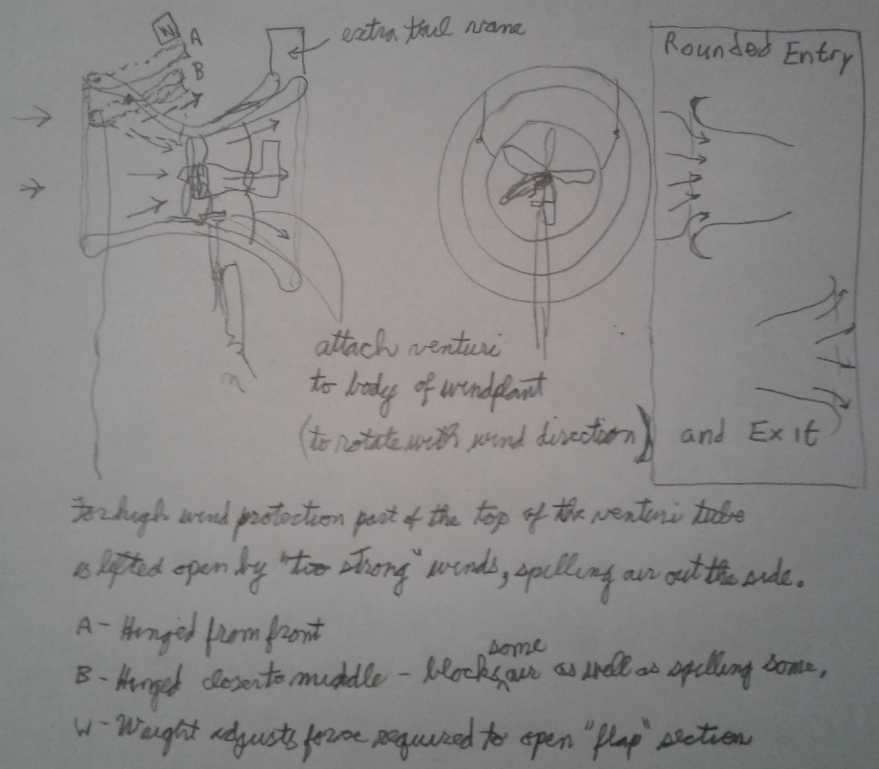 W
A
B
extra tail vane
Rounded Entry
attach venturi
to body of windplant
(to rotate with wind direction)
and Exit
For high wind protection part of the top of the venturi tube
is lifted open by "too strong" winds, spilling air out the side.
A - Hinged from front
B - Hinged closer to middle - blocks some air as well as spilling some,
W - Weight adjusts force required to open "flap" section